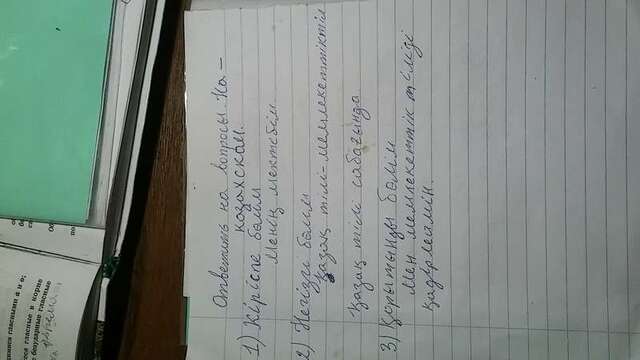 гласными а и о;
гласные в корне
безударные гласные
Ответить на вопросы. На-
казахском.
1) Кіріспе бөлім
Менің мектебім
2) Негізгі бөлім
Қазақ тілі-мемлекеттіктіл
Қазақ тілі сабағында
3) Қорытынды бөлім
Мен мемлекеттік тілізді
қадірлеймін.